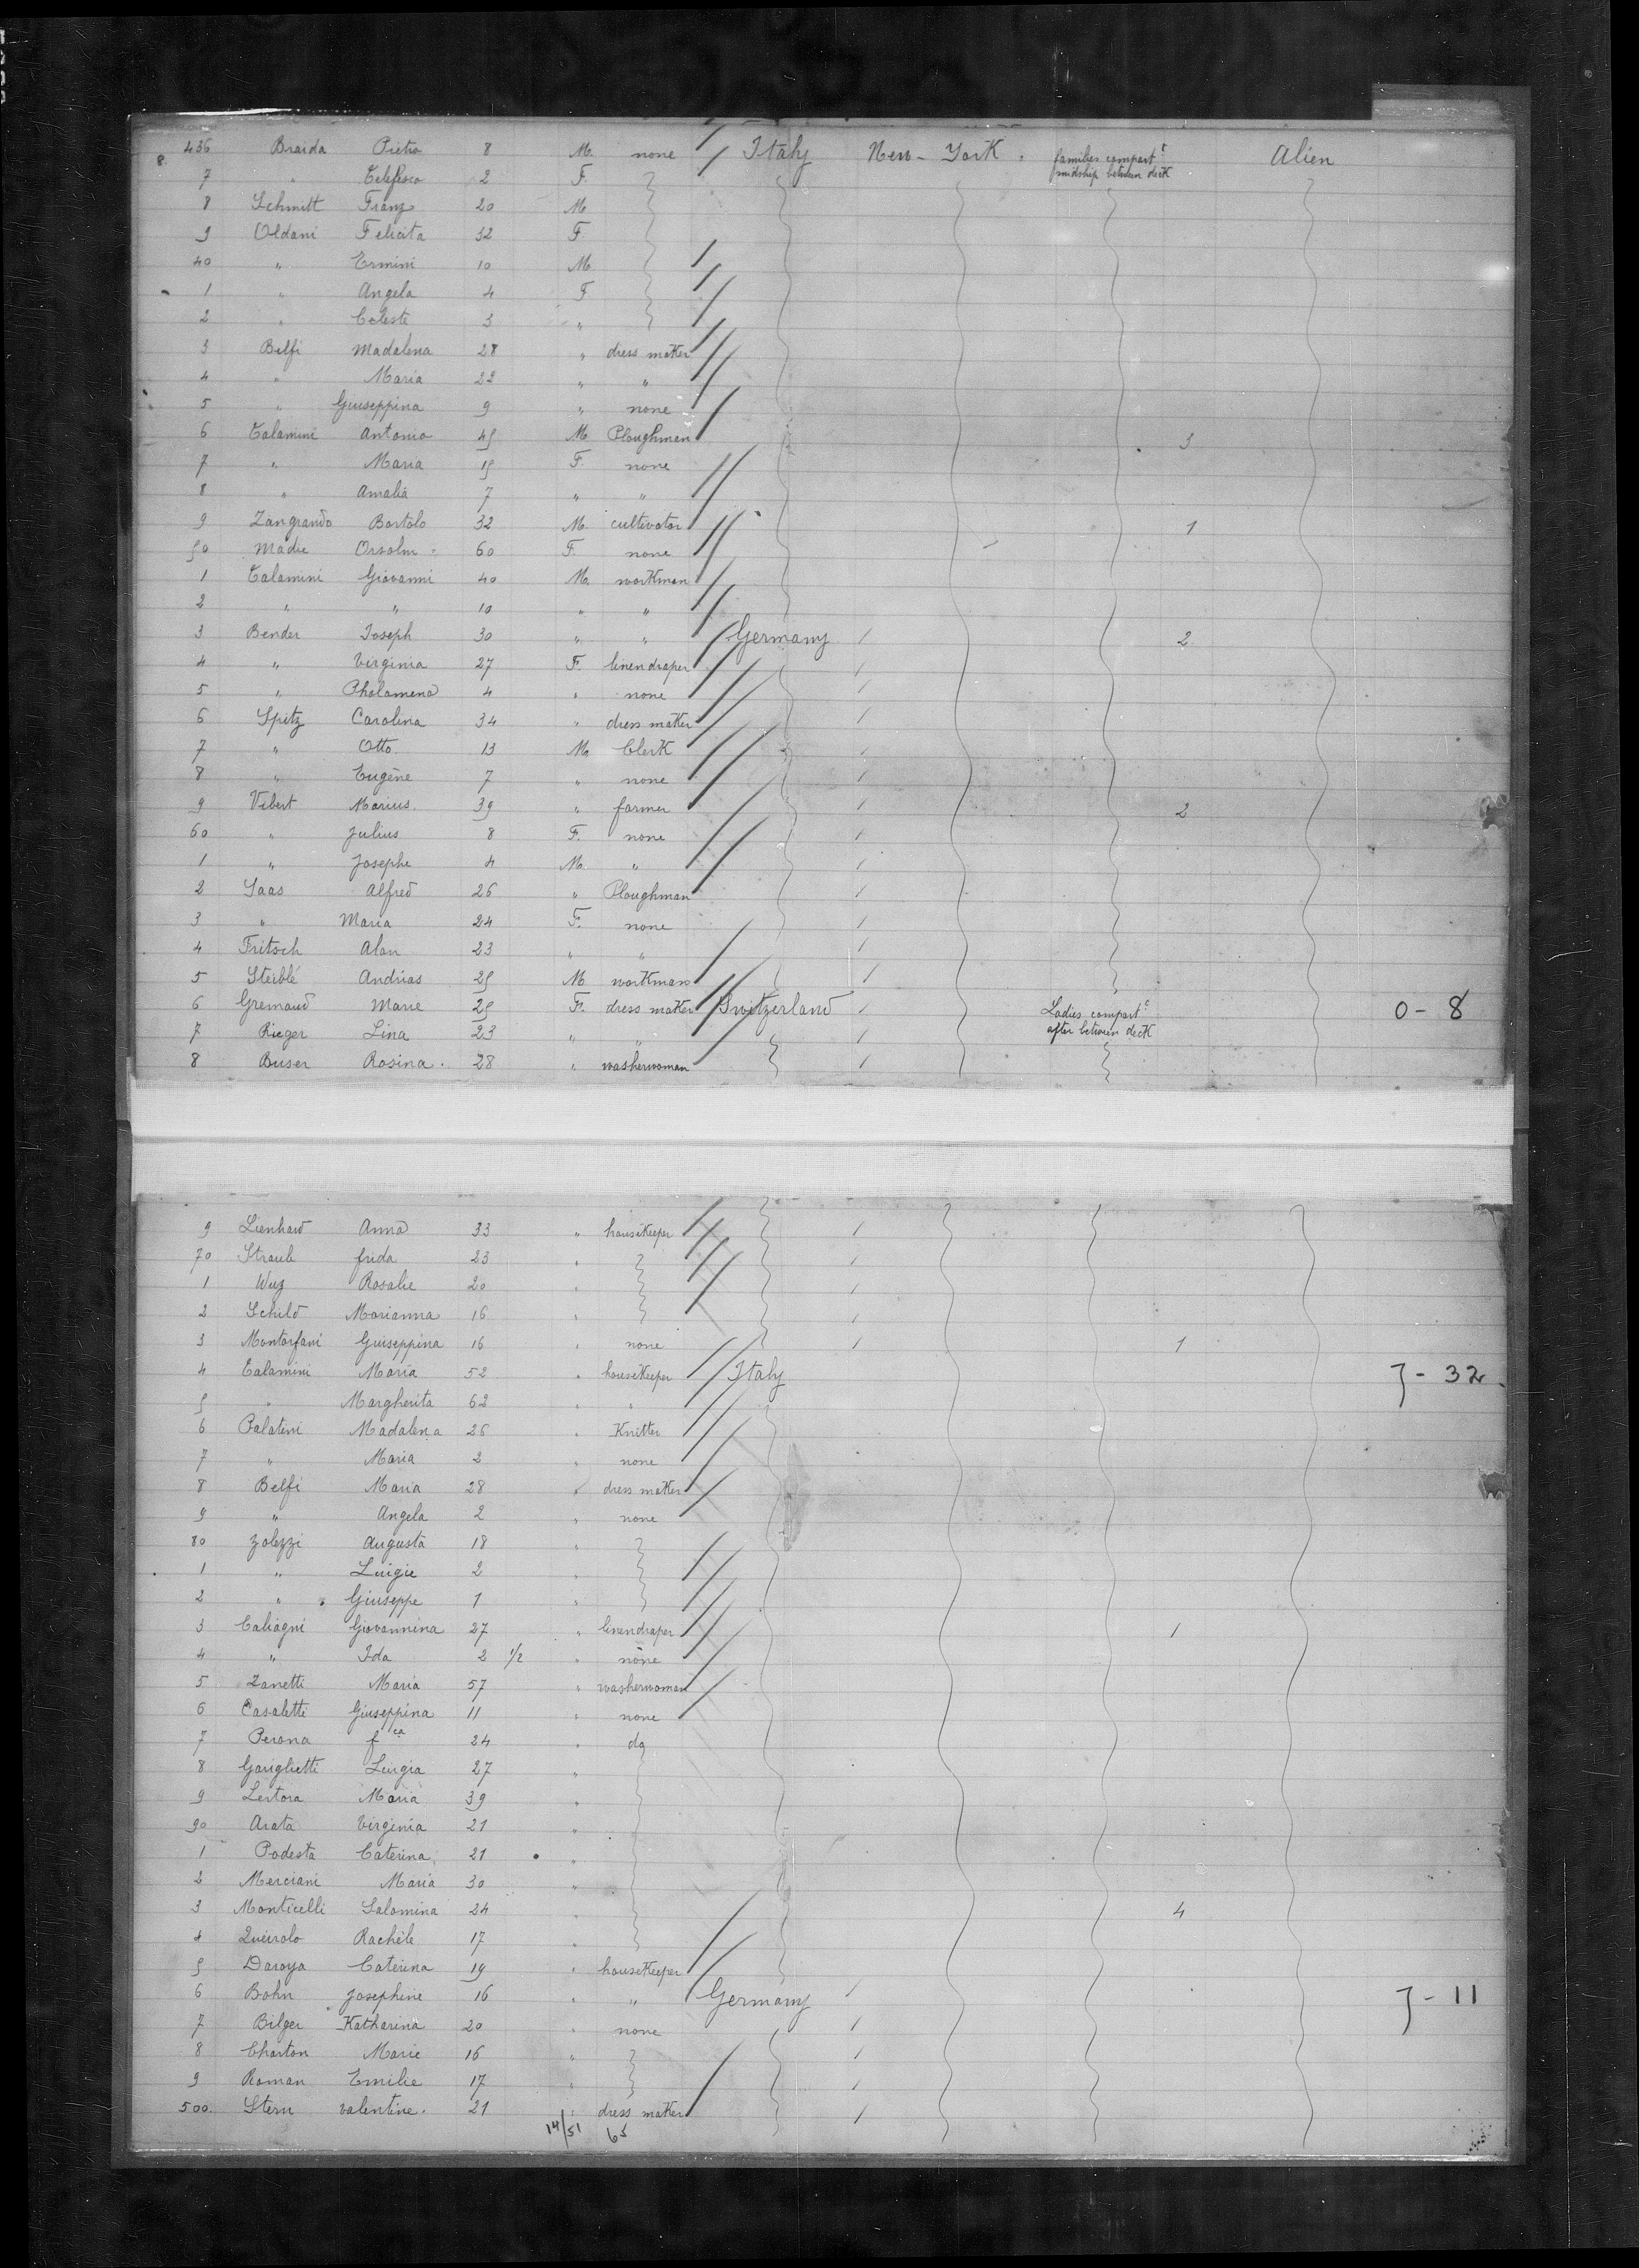 436 Braida Pietro 8 M. none Italy New-York. families compart^t Alien
7 " 2 F. midship between deck
8 Schmitt Franz 20 M
9 Oldani Felicita 32 F.
40 " Ermini 10 M
1 " Angela 4 F
2 " Celeste 3 "
3 Belfi Madalena 28 " dress maker
4 " Maria 22 " "
5 " Giuseppina 9 " none
6 Talamini Antonio 45 M Ploughman 3
7 " Maria 15 F. none
8 " Amalia 7 " "
9 Zangrando Bortolo 32 M. cultivator 1
50 Madre Orsolm 60 F. none
1 Talamini Giovanni 40 M. workman
2 " " 10 " "
3 Bender Joseph 30 " " Germany 2
4 " Virginia 27 F. linendraper
5 " Phalamena 4 " none
6 Spitz Carolina 34 " dress maker
7 " Otto 13 M. Clerk
8 " Eugène 7 " none
9 Vibert Marius 39 " farmer 2
60 " Julius 8 F. none
1 " Josephe 4 M. "
2 Saas Alfred 26 " Ploughman
3 " Maria 24 F. none
4 Fritsch Alan 23 " "
5 Steiblé Andrias 25 M workman
6 Gremaud Marie 25 F. dress maker Switzerland Ladies compart^t 0-8
7 Rieger Lina 23 " " after between deck
8 Buser Rosina. 28 " washerwoman
9 Lienhard Anna 33 " housekeeper
70 Straub frida 23 "
1 Wuz Rosalie 20 "
2 Schild Marianna 16 "
3 Montorfani Guiseppina 16 " none 1
4 Talamini Maria 52 " housekeeper Italy J-32
5 " Margherita 62 " "
6 Palatini Madalena 26 " Knitter
7 " Maria 2 " none
8 Belfi Maria 28 " dress maker
9 " Angela 2 " none
80 Zolezzi Augusta 18 "
1 " Luigie 2 "
2 " Giuseppe 1 "
3 Caliagni Giovannina 27 " linendraper 1
4 " Ida 2 1/2 " none
5 Zanetti Maria 57 " washerwoman
6 Casaletti Giuseppina 11 " none
7 Perona f^ca 24 " do
8 Gariglietti Luigia 27 "
9 Lertora Maria 39 "
90 Arata Virginia 21 "
1 Podesta Caterina 21 "
2 Merciani Maria 30 "
3 Monticelli Salomina 24 " 4
4 Queirolo Rachele 17 "
5 Daroya Caterina 19 " housekeeper
6 Bohn Josephine 16 " " Germany J-11
7 Bilger Katharina 20 " none
8 Charton Marie 16 "
9 Roman Emilie 17 "
500. Stern valentine. 21 " dress maker
14/51 65